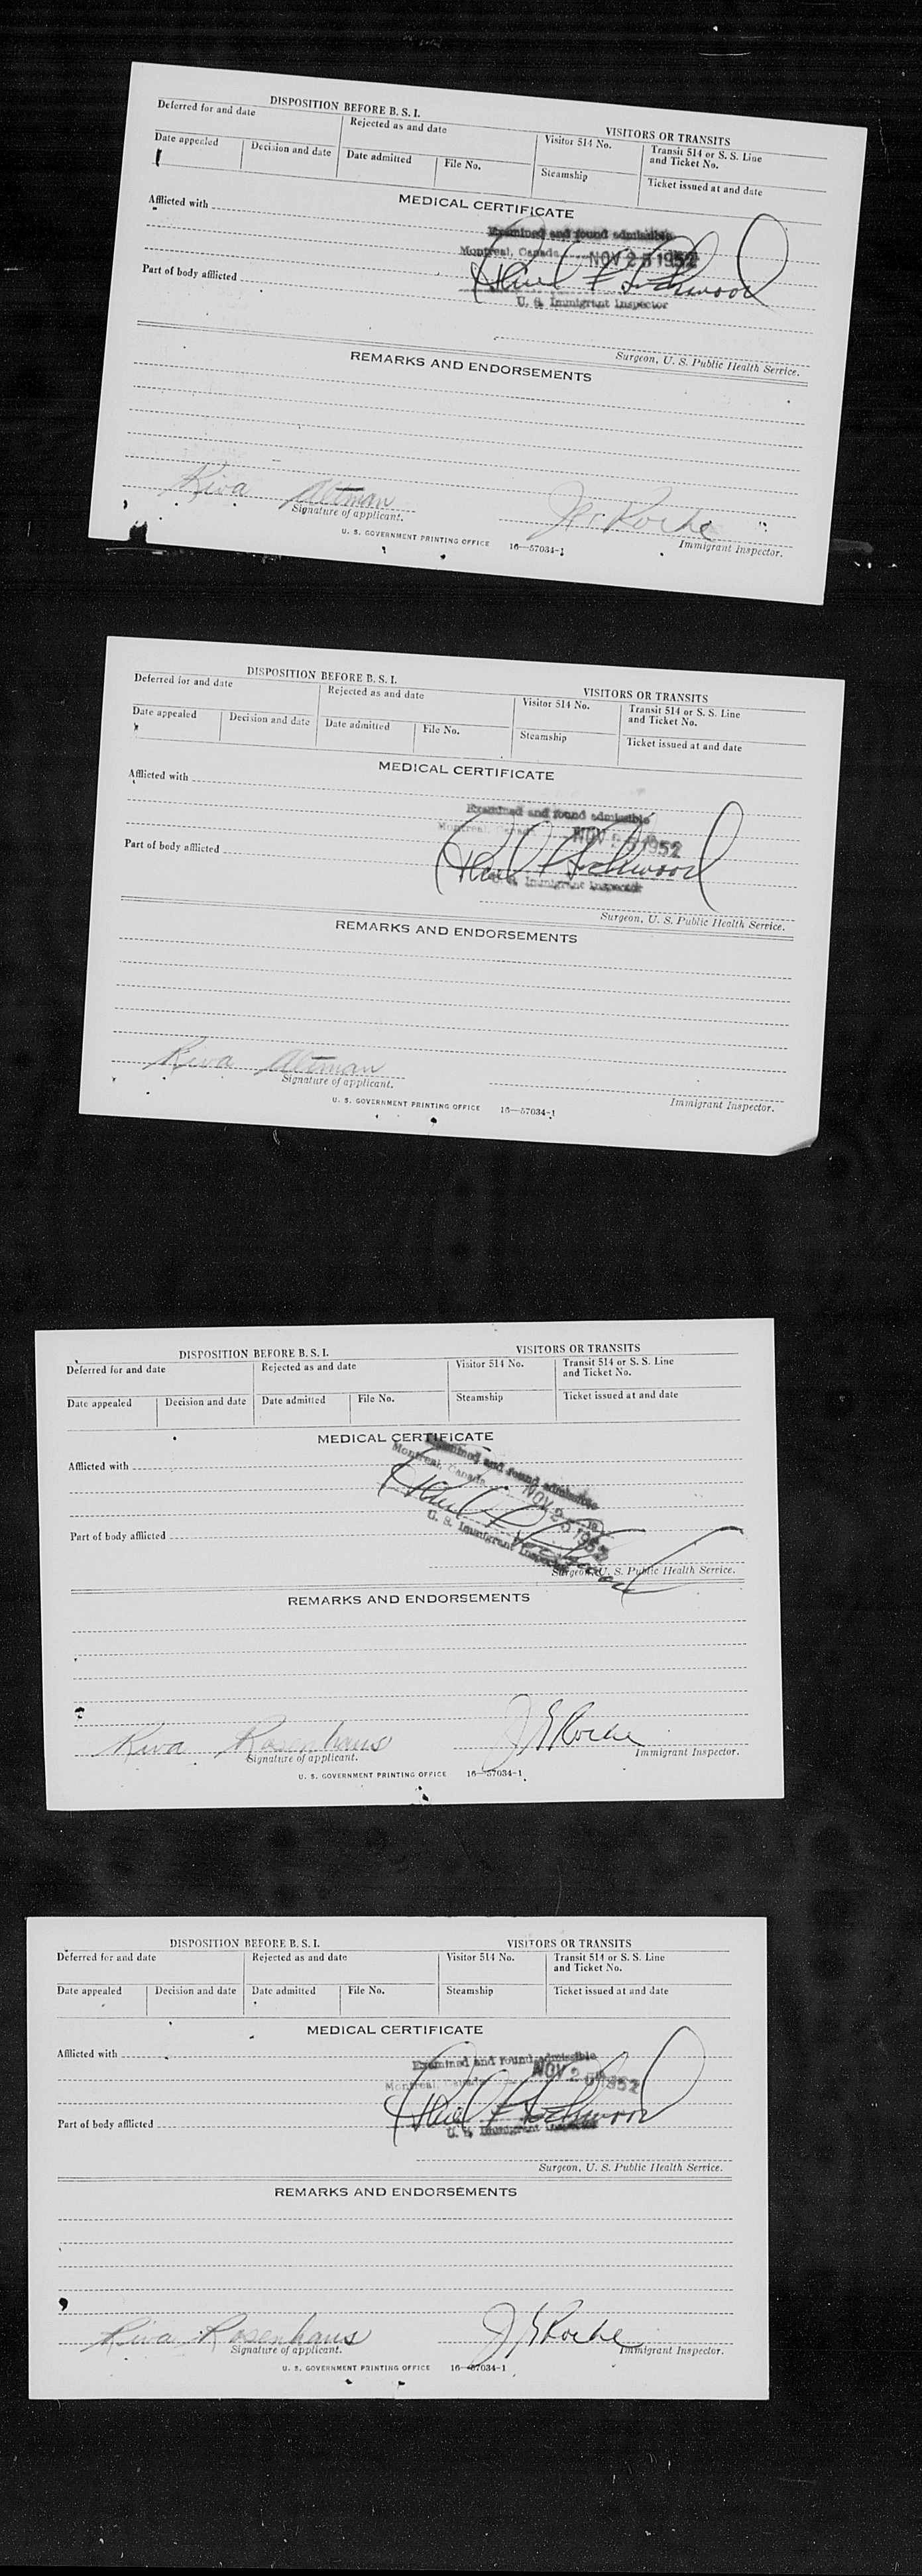 DISPOSITION BEFORE B. S. I.
VISITORS OR TRANSITS
Deferred for and date
Rejected as and date
Visitor 514 No.
Transit 514 or S. S. Line
and Ticket No.
Date appealed
Decision and date
Date admitted
File No.
Steamship
Ticket issued at and date
MEDICAL CERTIFICATE
Afflicted with
Examined and found admissible
Montreal, Canada NOV 25 1952
Part of body afflicted
U. S. Immigrant Inspector
Surgeon, U. S. Public Health Service.
REMARKS AND ENDORSEMENTS
Riva Altman
Roche
Signature of applicant.
Immigrant Inspector.
U. S. GOVERNMENT PRINTING OFFICE 16—57034-1
DISPOSITION BEFORE B. S. I.
VISITORS OR TRANSITS
Deferred for and date
Rejected as and date
Visitor 514 No.
Transit 514 or S. S. Line
and Ticket No.
Date appealed
Decision and date
Date admitted
File No.
Steamship
Ticket issued at and date
MEDICAL CERTIFICATE
Afflicted with
Examined and found admissible
Montreal, Canada NOV 25 1952
Part of body afflicted
U. S. Immigrant Inspector
Surgeon, U. S. Public Health Service.
REMARKS AND ENDORSEMENTS
Riva Altman
Signature of applicant.
Immigrant Inspector.
U. S. GOVERNMENT PRINTING OFFICE 16—57034-1
DISPOSITION BEFORE B. S. I.
VISITORS OR TRANSITS
Deferred for and date
Rejected as and date
Visitor 514 No.
Transit 514 or S. S. Line
and Ticket No.
Date appealed
Decision and date
Date admitted
File No.
Steamship
Ticket issued at and date
MEDICAL CERTIFICATE
Afflicted with
Examined and found admissible
Montreal, Canada NOV 25 1952
Part of body afflicted
U. S. Immigrant Inspector
Surgeon, U. S. Public Health Service.
REMARKS AND ENDORSEMENTS
Riva Rosenhaus
Roche
Signature of applicant.
Immigrant Inspector.
U. S. GOVERNMENT PRINTING OFFICE 16—57034-1
DISPOSITION BEFORE B. S. I.
VISITORS OR TRANSITS
Deferred for and date
Rejected as and date
Visitor 514 No.
Transit 514 or S. S. Line
and Ticket No.
Date appealed
Decision and date
Date admitted
File No.
Steamship
Ticket issued at and date
MEDICAL CERTIFICATE
Afflicted with
Examined and found admissible
Montreal, Canada NOV 25 1952
Part of body afflicted
U. S. Immigrant Inspector
Surgeon, U. S. Public Health Service.
REMARKS AND ENDORSEMENTS
Riva Rosenhaus
Roche
Signature of applicant.
Immigrant Inspector.
U. S. GOVERNMENT PRINTING OFFICE 16—57034-1